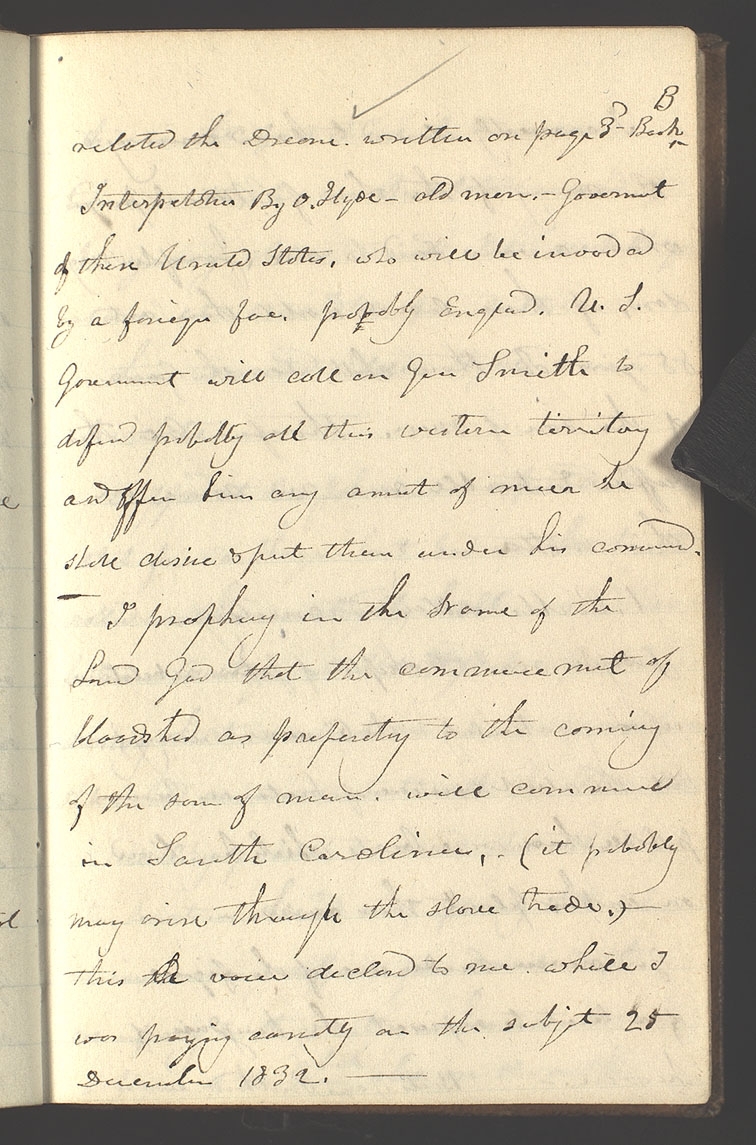 B
related the Dreame. written on page 3d Book
Interpretation By O. Hyde - old man. - Governmt
of these United States, who will be invaded
by a foreign foe. propably England. U. S.
Goverment will call on Gen Smith to
defend probably all this western territory
and offer him any amnt of men he
shall desire & put them under his command.
I prophecy in the Name of the
Lord God that the commencement of
bloodshed as preparetory to the coming
of the son of man. will commence
in South Carolina,. (it probably
may arise through the slave trade.)
this the voice declared to me. while I
was praying earnestly on the subject 25
December 1832.